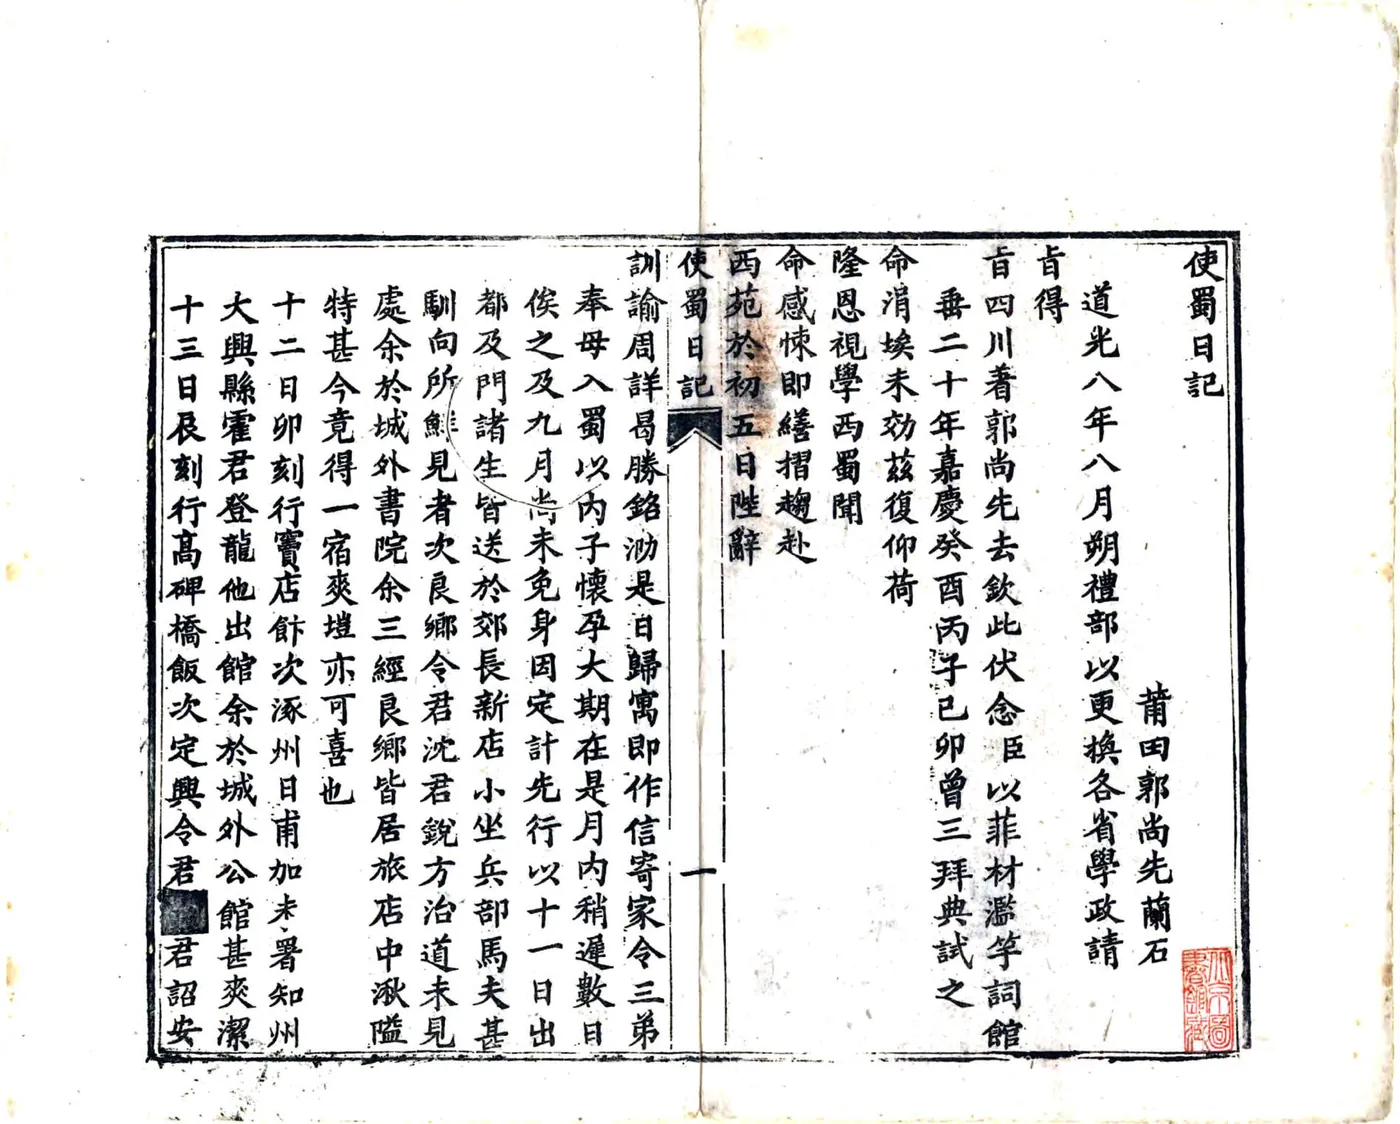 使蜀日記
莆田郭尚先蘭石
道光八年八月朔禮部以更換各省學政請
旨得
旨四川著郭尚先去欽此伏念臣以菲材濫竽詞館
垂二十年嘉慶癸酉丙子己卯曾三拜典試之
命涓埃未効茲復仰荷
隆恩視學西蜀聞
命感悚即繕摺趨赴
西苑於初五日陛辭
使蜀日記
一
訓諭周詳曷勝銘泐是日歸寓即作信寄家令三弟
奉母入蜀以內子懷孕大期在是月內稍遲數日
俟之及九月尚未免身因定計先行以十一日出
都及門諸生皆送於郊長新店小坐兵部馬夫甚
馴向所鮮見者次良鄉令君沈君銳方治道未見
處余於城外書院余三經良鄉皆居旅店中湫隘
特甚今竟得一宿爽塏亦可喜也
十二日卯刻行竇店飰次涿州日甫加未署知州
大興縣霍君登龍他出館余於城外公館甚爽潔
十三日辰刻行高碑橋飯次定興令君■君詔安